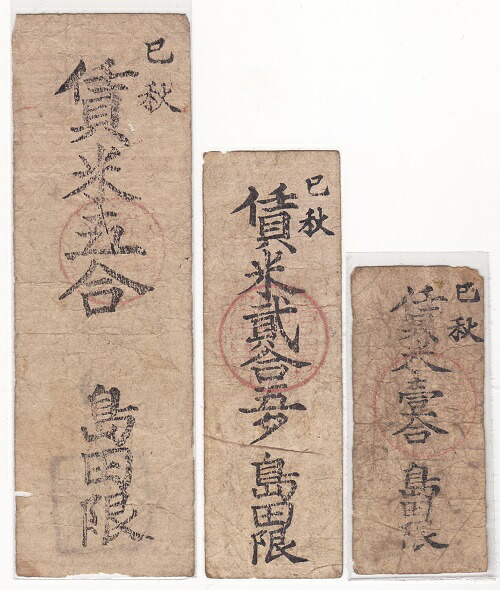 巳秋
賃米五合
島田限
巳秋
賃米貳合五勺
島田限
巳秋
賃米壹合
島田限